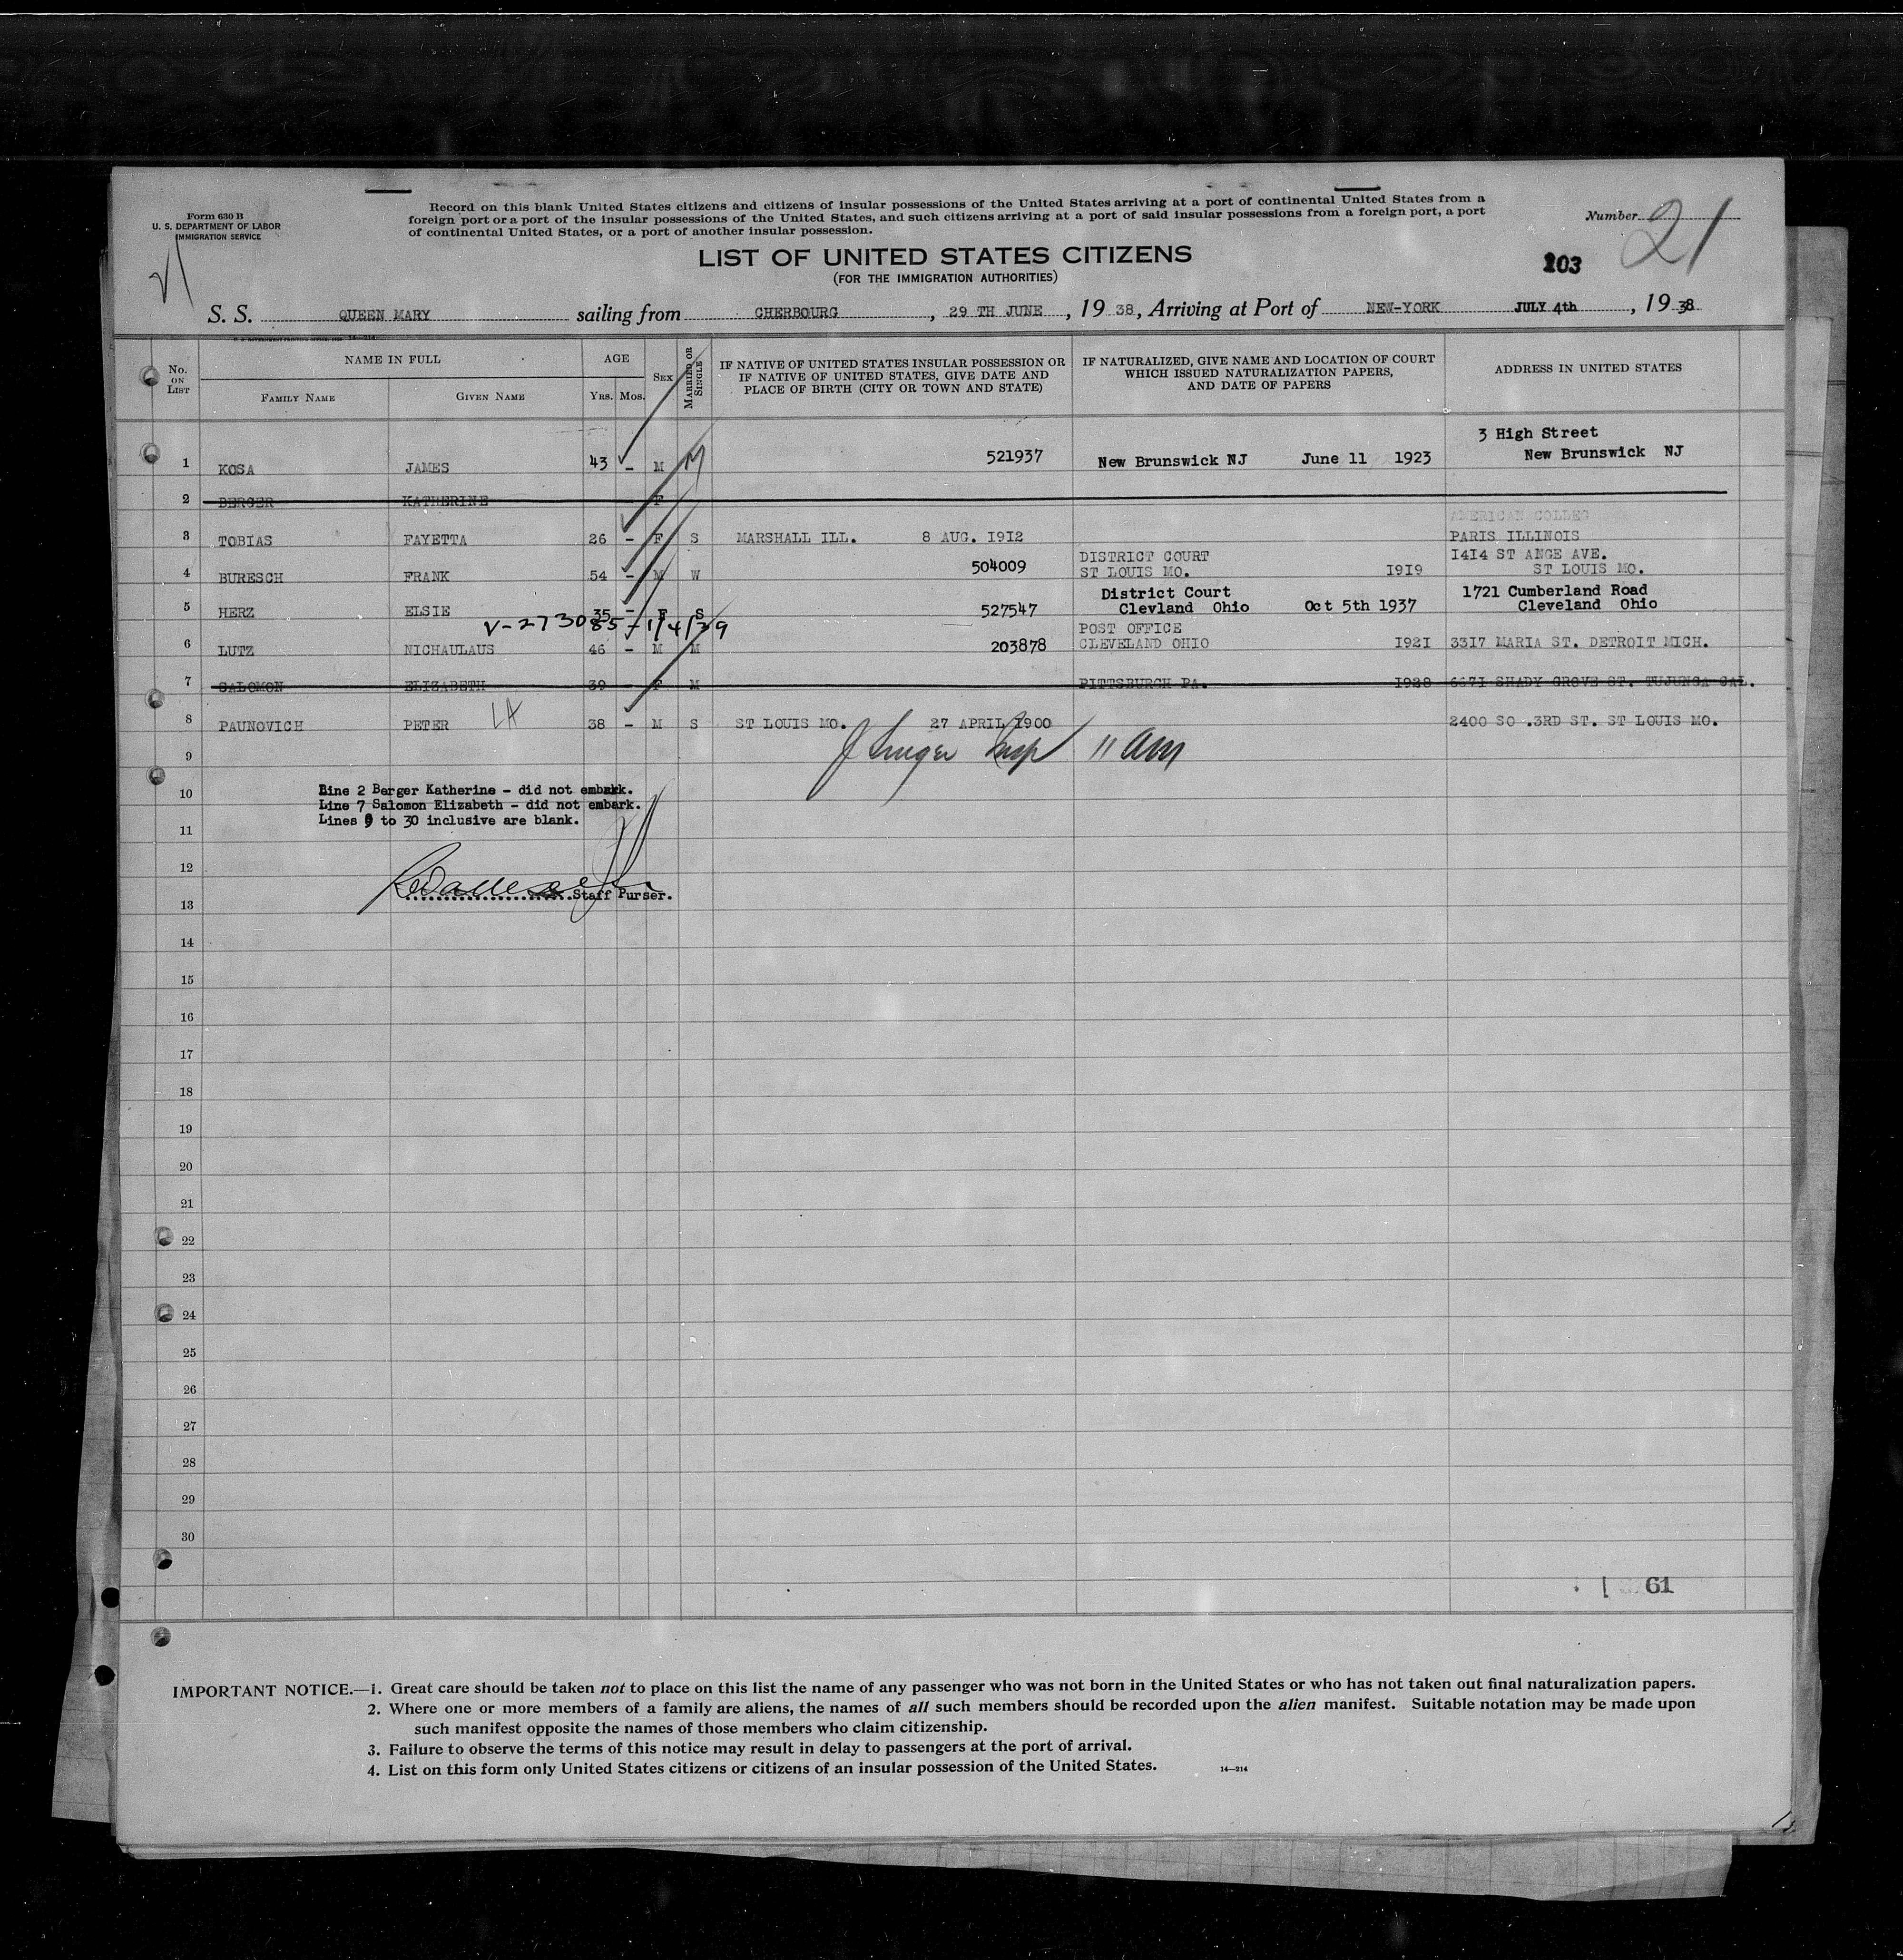 Form 630 B
U. S. DEPARTMENT OF LABOR
IMMIGRATION SERVICE
Record on this blank United States citizens and citizens of insular possessions of the United States arriving at a port of continental United States from a
foreign port or a port of the insular possessions of the United States, and such citizens arriving at a port of said insular possessions from a foreign port, a port
of continental United States, or a port of another insular possession.
Number 21
LIST OF UNITED STATES CITIZENS
(FOR THE IMMIGRATION AUTHORITIES)
103
S. S. QUEEN MARY sailing from CHERBOURG, 29 TH JUNE, 19 38, Arriving at Port of NEW-YORK JULY 4th, 19 38
No. ON LIST
NAME IN FULL
FAMILY NAME
GIVEN NAME
AGE
YRS. MOS.
SEX
MARRIED OR SINGLE
IF NATIVE OF UNITED STATES INSULAR POSSESSION OR
IF NATIVE OF UNITED STATES, GIVE DATE AND
PLACE OF BIRTH (CITY OR TOWN AND STATE)
IF NATURALIZED, GIVE NAME AND LOCATION OF COURT
WHICH ISSUED NATURALIZATION PAPERS,
AND DATE OF PAPERS
ADDRESS IN UNITED STATES
3 High Street
1 KOSA JAMES 43 - M M 521937 New Brunswick NJ June 11 1923 New Brunswick NJ
2 BERGER KATHERINE F
AMERICAN COLLEG
3 TOBIAS FAYETTA 26 - F S MARSHALL ILL. 8 AUG. 1912 PARIS ILLINOIS
DISTRICT COURT 1414 ST ANGE AVE.
4 BURESCH FRANK 54 - M W 504009 ST LOUIS MO. 1919 ST LOUIS MO.
District Court 1721 Cumberland Road
5 HERZ ELSIE 35 - F S 527547 Clevland Ohio Oct 5th 1937 Cleveland Ohio
V-273085-1/4/39
POST OFFICE
6 LUTZ NICHAULAUS 46 - M M 203878 CLEVELAND OHIO 1921 3317 MARIA ST. DETROIT MICH.
7 SALOMON ELIZABETH 39 - F M PITTSBURGH PA. 1928 6671 SHADY GROVE ST. TUJUNGA CAL.
8 PAUNOVICH PETER 38 - M S ST LOUIS MO. 27 APRIL 1900 2400 SO .3RD ST. ST LOUIS MO.
9 Insp 11 am
10
Line 2 Berger Katherine - did not embark.
Line 7 Salomon Elizabeth - did not embark.
Lines 9 to 30 inclusive are blank.
11
12
Staff Purser.
13
14
15
16
17
18
19
20
21
22
23
24
25
26
27
28
29
30
61
IMPORTANT NOTICE.—1. Great care should be taken not to place on this list the name of any passenger who was not born in the United States or who has not taken out final naturalization papers.
2. Where one or more members of a family are aliens, the names of all such members should be recorded upon the alien manifest. Suitable notation may be made upon
such manifest opposite the names of those members who claim citizenship.
3. Failure to observe the terms of this notice may result in delay to passengers at the port of arrival.
4. List on this form only United States citizens or citizens of an insular possession of the United States. 14—214